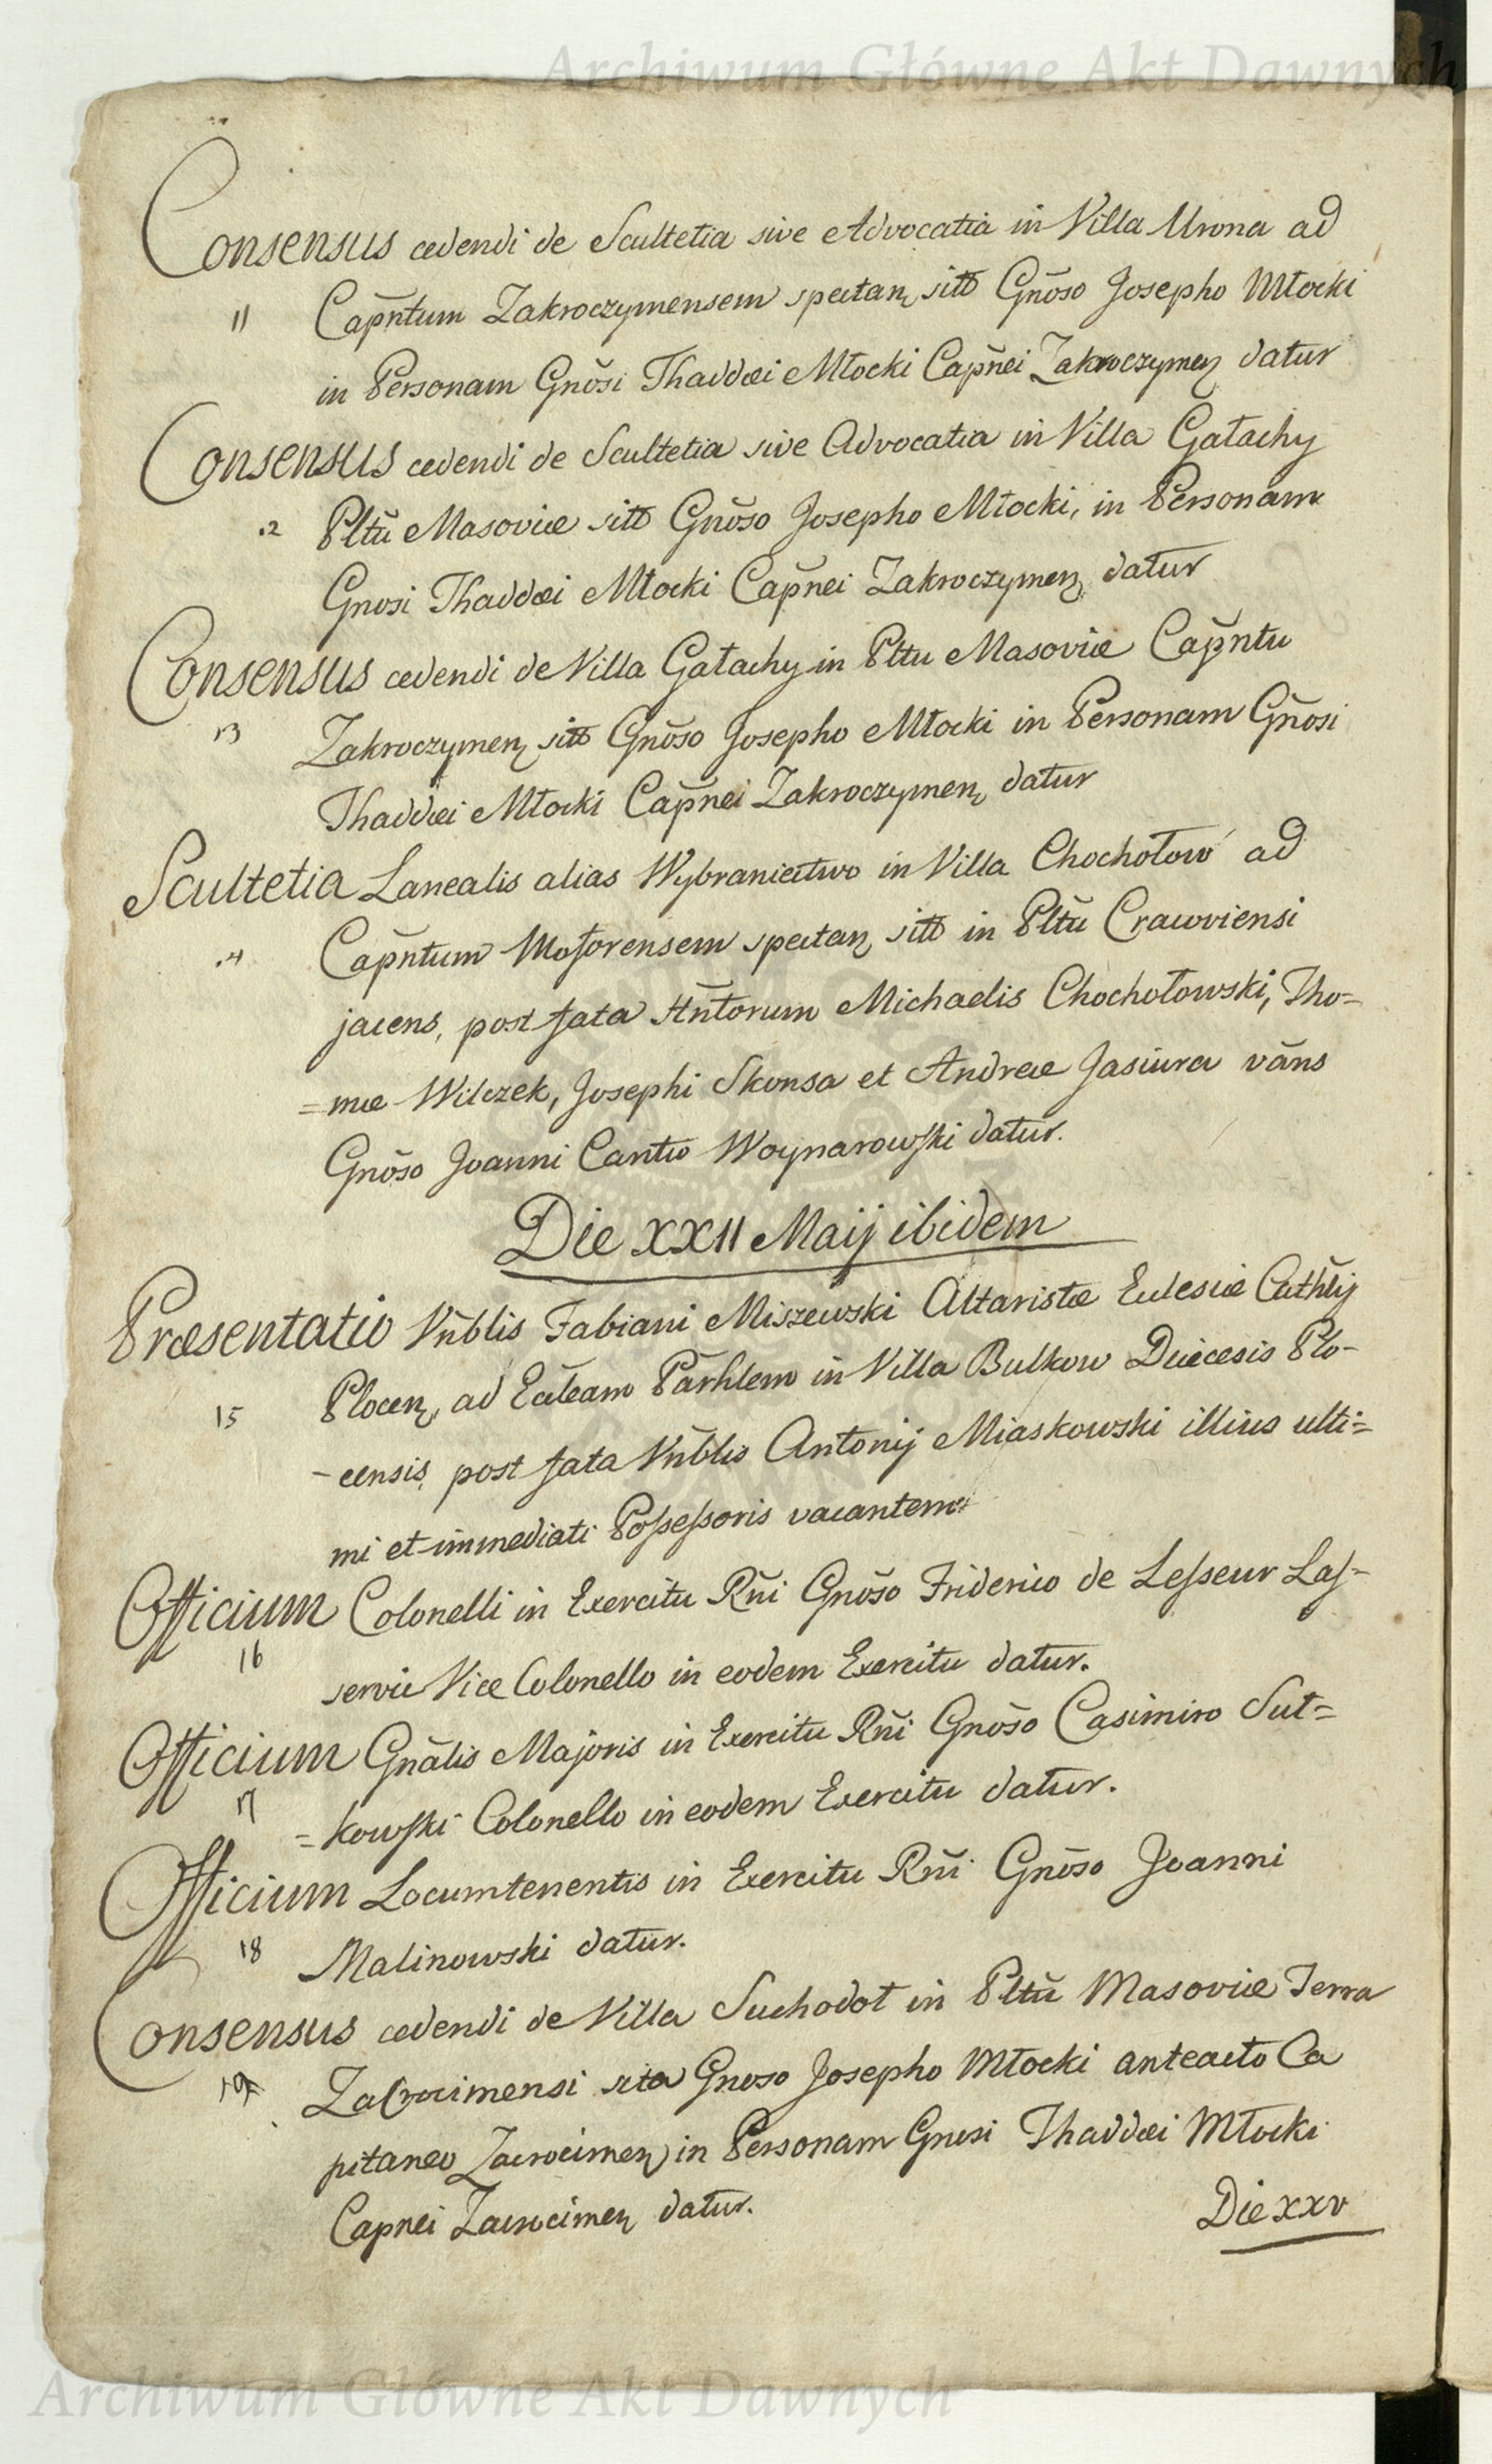 Archiwum Główne Akt Dawnych
Consensus cedendi de Scultetia sive Advocatia in Villa Urona ad
11 Capñtum Zakroczymensem spectan sitt Gnõso Josepho Młocki
in Personam Gnõsi Thaddæi Młocki Capñei Zakroczymen datur
Consensus cedendi de Scultetia sive Advocatia in Villa Gałachy
12 Pltũ Masoviæ sitt Gnõso Josepho Młocki, in Personam
Gnosi Thaddæi Młocki Capñei Zakroczymen datur
Consensus cedendi de Villa Gałachy in Pltu Masoviæ Capñtu
13 Zakroczymen sitt Gnõso Josepho Młocki in Personam Gñosi
Thaddæi Młocki Capñei Zakroczymen datur
Scultetia Lanealis alias Wybraniectwo in Villa Chochołow ad
14 Capñtum Motorensem spectan sitt in Pltũ Cracoviensi
jacens, post fata Hñtorum Michaelis Chochołowski, Tho=
=mæ Wilczek, Josephi Skonsa et Andreæ Jasiura vãns
Gnõso Joanni Cantio Woynarowski datur.
Die XXII Maij ibidem
Præsentatio Vñblis Fabiani Miszewski Altaristæ Ecclesiæ Cathlij
15 Plocen, ad Ecclĩeam Pãrhlem in Villa Bulkow Diæcesis Plo-
-censis, post fata Vñblis Antonij Miaskowski illius ulti=
mi et immediati Possessoris vacantem
Officium Colonelli in Exercitu Rñi Gnõso Friderico de Lesseur Las=
16 servie Vice Colonello in eodem Exercitu datur.
Officium Gnãlis Majoris in Exercitu Rñi Gnõso Casimiro Sut=
17 =kowski Colonello in eodem Exercitu datur.
Officium Locumtenentis in Exercitu Rñi Gnõso Joanni
18 Malinowski datur.
Consensus cedendi de Villa Suchodoł in Pltũ Masoviæ Terra
19 Zacrocimensi sita Gnoso Josepho Młocki anteacto Ca
pitaneo Zacrocimen in Personam Gnosi Thaddæi Młocki
Capnei Zacrocimen datur.
Die XXV
Archiwum Główne Akt Dawnych